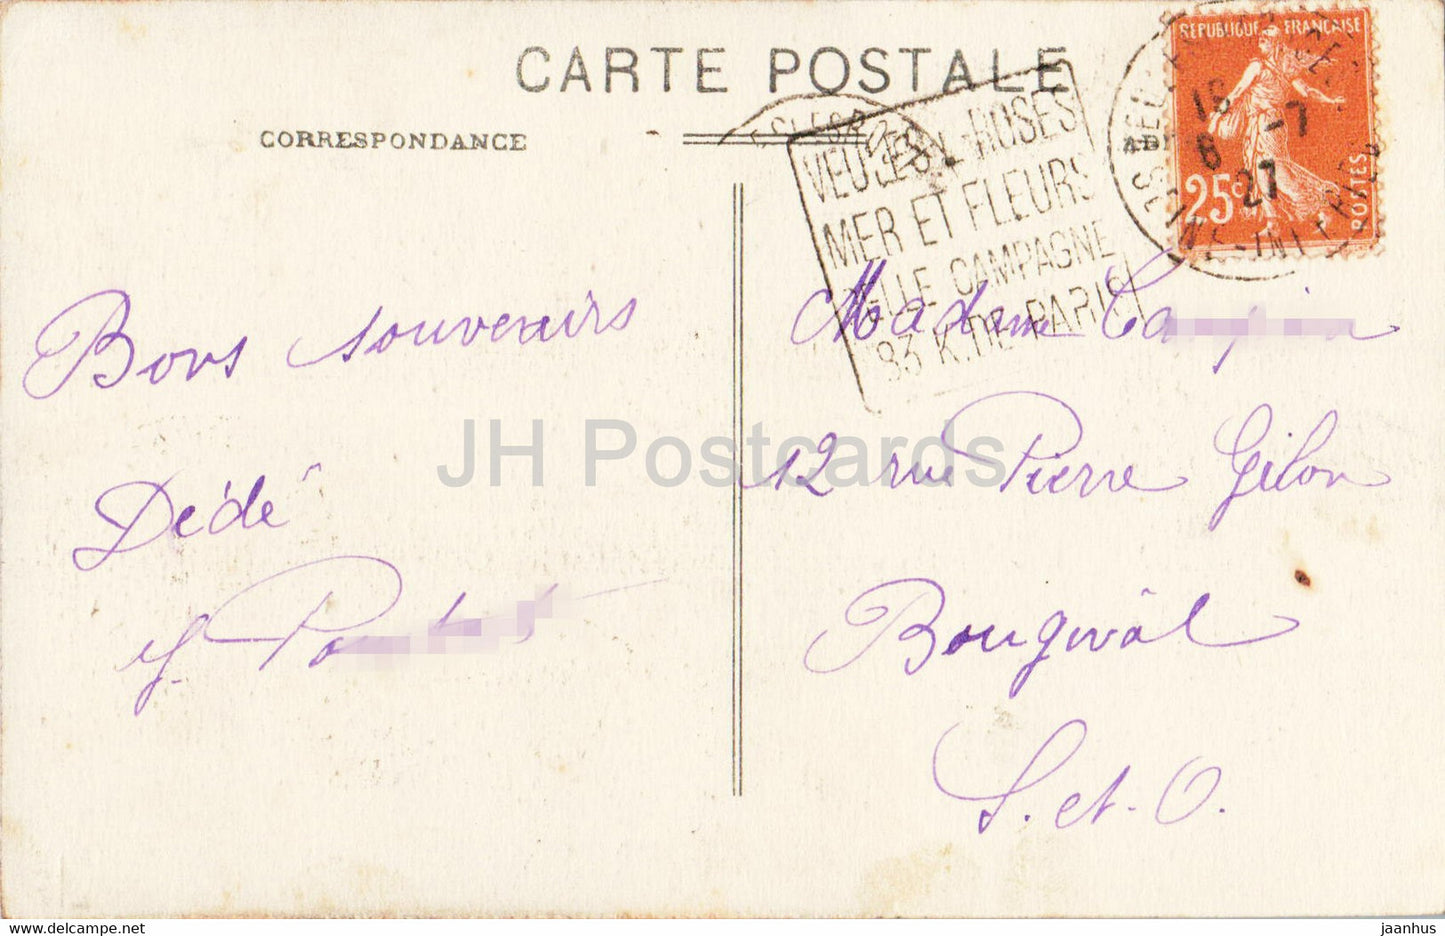 CARTE POSTALE
CORRESPONDANCE
Bons souvenirs
Dédé
VEULES-L-ROSES
MER ET FLEURS
BELLE CAMPAGNE
83 K. DE PARIS
REPUBLIQUE FRANÇAISE
25c
POSTES
16
8 -7
27
Madame
12 rue Pierre Gilon
Bougival
S. et. O.
JH Postcards
jaanhus @ delcampe.net